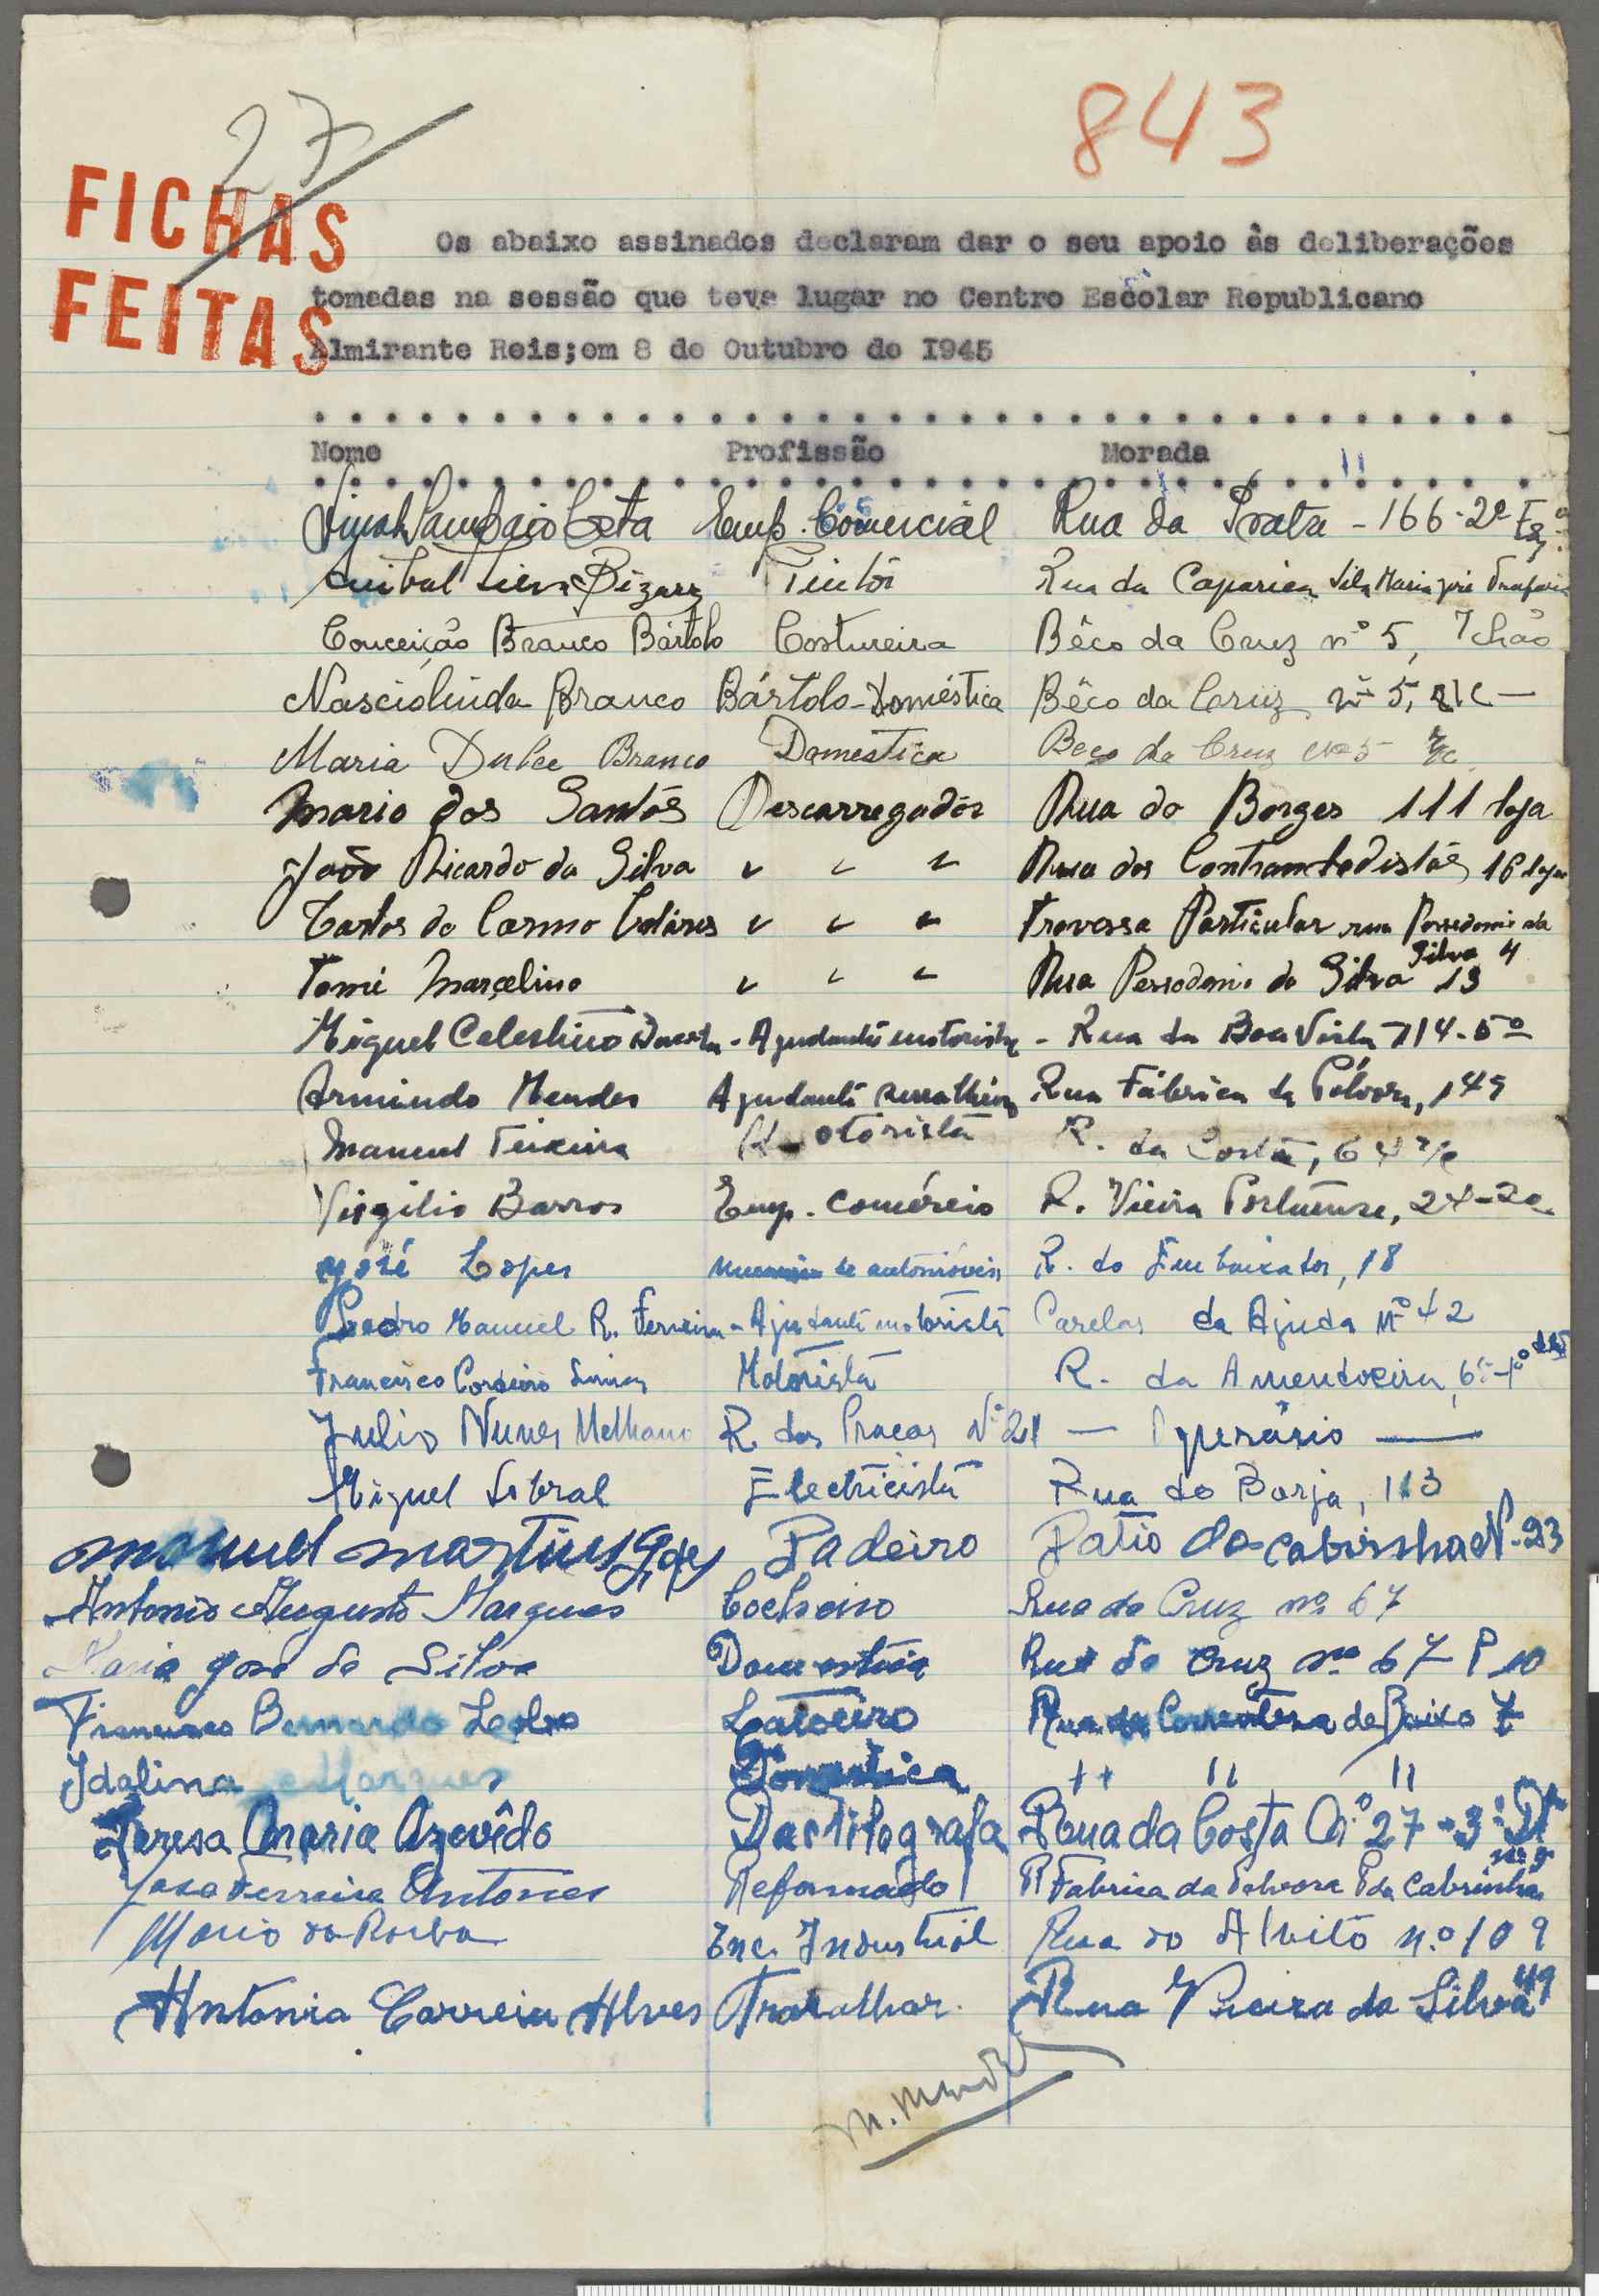 27
843
FICHAS
FEITAS
Os abaixo assinados declaram dar o seu apoio às deliberações
tomadas na sessão que teve lugar no Centro Escolar Republicano
Almirante Reis;em 8 de Outubro de I945
Nome Profissão Morada
Sampaio Emp. Comercial Rua da Prata - 166-2º Esq.
Anibal Bizarro Rua da Caparica Vila Maria José
Conceição Branco Bártolo Costureira Bêco da Cruz nº 5, 7 chão
Nasciolinda Branco Bártolo - Doméstica Bêco da Cruz nº 5, r/c
Maria Dulce Branco Domestica Beco da Cruz nº 5 r/c
Mario dos Santos Descarregador Rua do Borges 111 loja
João Ricardo da Silva " " " Rua dos Contramestres 16 loja
Carlos do Carmo " " " Travessa Particular rua Possedonio da Silva 4
Tomé Marçelino " " " Rua Possedonio da Silva 13
Miguel Celestino - Ajudante motorista - Rua da Boa Vista 114-5º
Armindo Mendes Ajudante serralheiro Rua Fábrica da Pólvora, 149
Manuel Teixeira Motorista R. da Costa, 64 r/c
Virgilio Barros Emp. comércio R. Vieira Portuense, 24-2º
José Lopes de automóveis R. do Embaixador, 18
Pedro Manuel R. Ferreira - Ajudante motorista da Ajuda Nº 42
Francisco Cordeiro Motorista R. da Amendoeira, 6-1º
Julio Nunes R. das Pracas Nº 21 — Operário —
Miguel Sobral Electricista Rua do Borja, 113
manuel martins Padeiro Patio do cabrinha Nº 23
Antonio Augusto Marques Cocheiro Rua da Cruz nº 67
Maria José da Silva Domestica Rua da Cruz nº 67 P 10
Francisco Bernardo Latoeiro Rua da Correnteza de Baixo 7
Idalina Marques Domestica " " "
Teresa Maria Azevêdo Dactilografa Rua da Costa Nº 27-3º Dtº
José Ferreira Antonio Reformado R Fabrica da Polvora P da Cabrinha nº 9
Mario da Rocha Enc. Industrial Rua do Alvito n.º 109
Antonia Correia Alves Trabalhar. Rua Vieira da Silva 49
M. Mendes